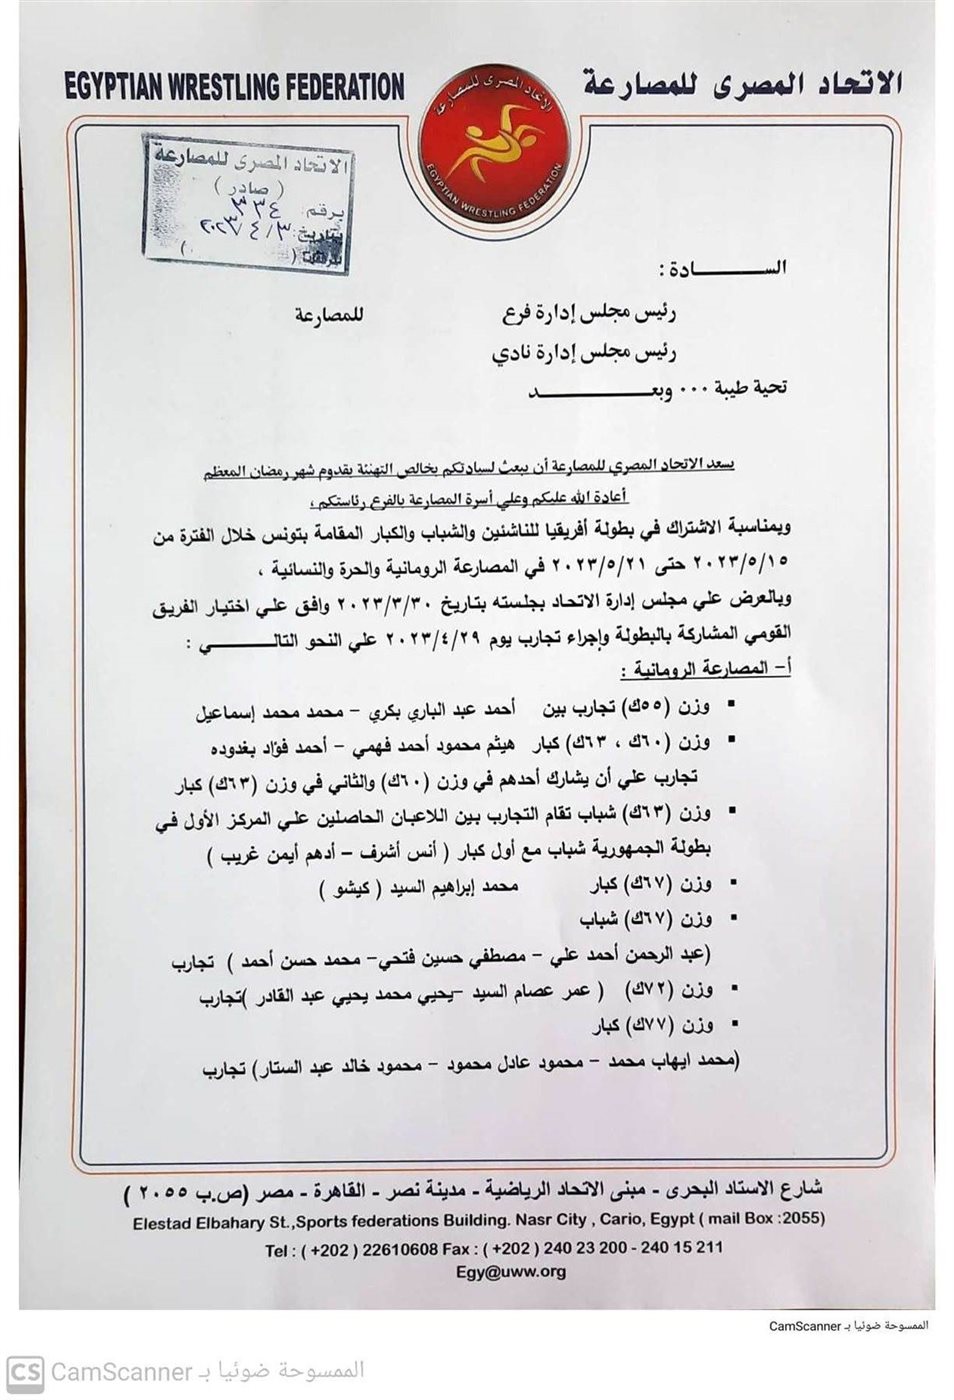 EGYPTIAN WRESTLING FEDERATION
الاتحاد المصرى للمصارعة
الاتحاد المصرى للمصارعة
EGYPTIAN WRESTLING FEDERATION
الاتحاد المصرى للمصارعة
( صادر )
برقم: ٣٣٤
بتاريخ: ٢٠٢٣/٤/٣
الســـــــادة :
رئيس مجلس إدارة فرع للمصارعة
رئيس مجلس إدارة نادي
تحية طيبة ٠٠٠ وبعـــــــــــد
يسعد الاتحاد المصري للمصارعة أن يبعث لسيادتكم بخالص التهنئة بقدوم شهر رمضان المعظم
أعادة الله عليكم وعلي أسرة المصارعة بالفرع رئاستكم ،
وبمناسبة الاشتراك في بطولة أفريقيا للناشئين والشباب والكبار المقامة بتونس خلال الفترة من
٢٠٢٣/٥/١٥ حتى ٢٠٢٣/٥/٢١ في المصارعة الرومانية والحرة والنسائية ،
وبالعرض علي مجلس إدارة الاتحاد بجلسته بتاريخ ٢٠٢٣/٣/٣٠ وافق علي اختيار الفريق
القومي المشاركة بالبطولة وإجراء تجارب يوم ٢٠٢٣/٤/٢٩ علي النحو التالـــــــي :
أ- المصارعة الرومانية :
▪ وزن (٥٥ك) تجارب بين أحمد عبد الباري بكري – محمد محمد إسماعيل
▪ وزن (٦٠ك ، ٦٣ك) كبار هيثم محمود أحمد فهمي – أحمد فؤاد بغدوده
تجارب علي أن يشارك أحدهم في وزن (٦٠ك) والثاني في وزن (٦٣ك) كبار
▪ وزن (٦٣ك) شباب تقام التجارب بين اللاعبان الحاصلين علي المركز الأول في
بطولة الجمهورية شباب مع أول كبار ( أنس أشرف – أدهم أيمن غريب )
▪ وزن (٦٧ك) كبار محمد إبراهيم السيد ( كيشو )
▪ وزن (٦٧ك) شباب
(عبد الرحمن أحمد علي – مصطفي حسين فتحي– محمد حسن أحمد ) تجارب
▪ وزن (٧٢ك) ( عمر عصام السيد –يحيي محمد يحيي عبد القادر )تجارب
▪ وزن (٧٧ك) كبار
(محمد ايهاب محمد – محمود عادل محمود – محمود خالد عبد الستار) تجارب
شارع الاستاد البحرى - مبنى الاتحاد الرياضية - مدينة نصر - القاهرة - مصر (ص.ب ٢٠٥٥ )
Elestad Elbahary St.,Sports federations Building. Nasr City , Cario, Egypt ( mail Box :2055)
Tel : ( +202 ) 22610608 Fax : ( +202 ) 240 23 200 - 240 15 211
Egy@uww.org
الممسوحة ضوئيا بـ CamScanner
CS الممسوحة ضوئيا بـ CamScanner